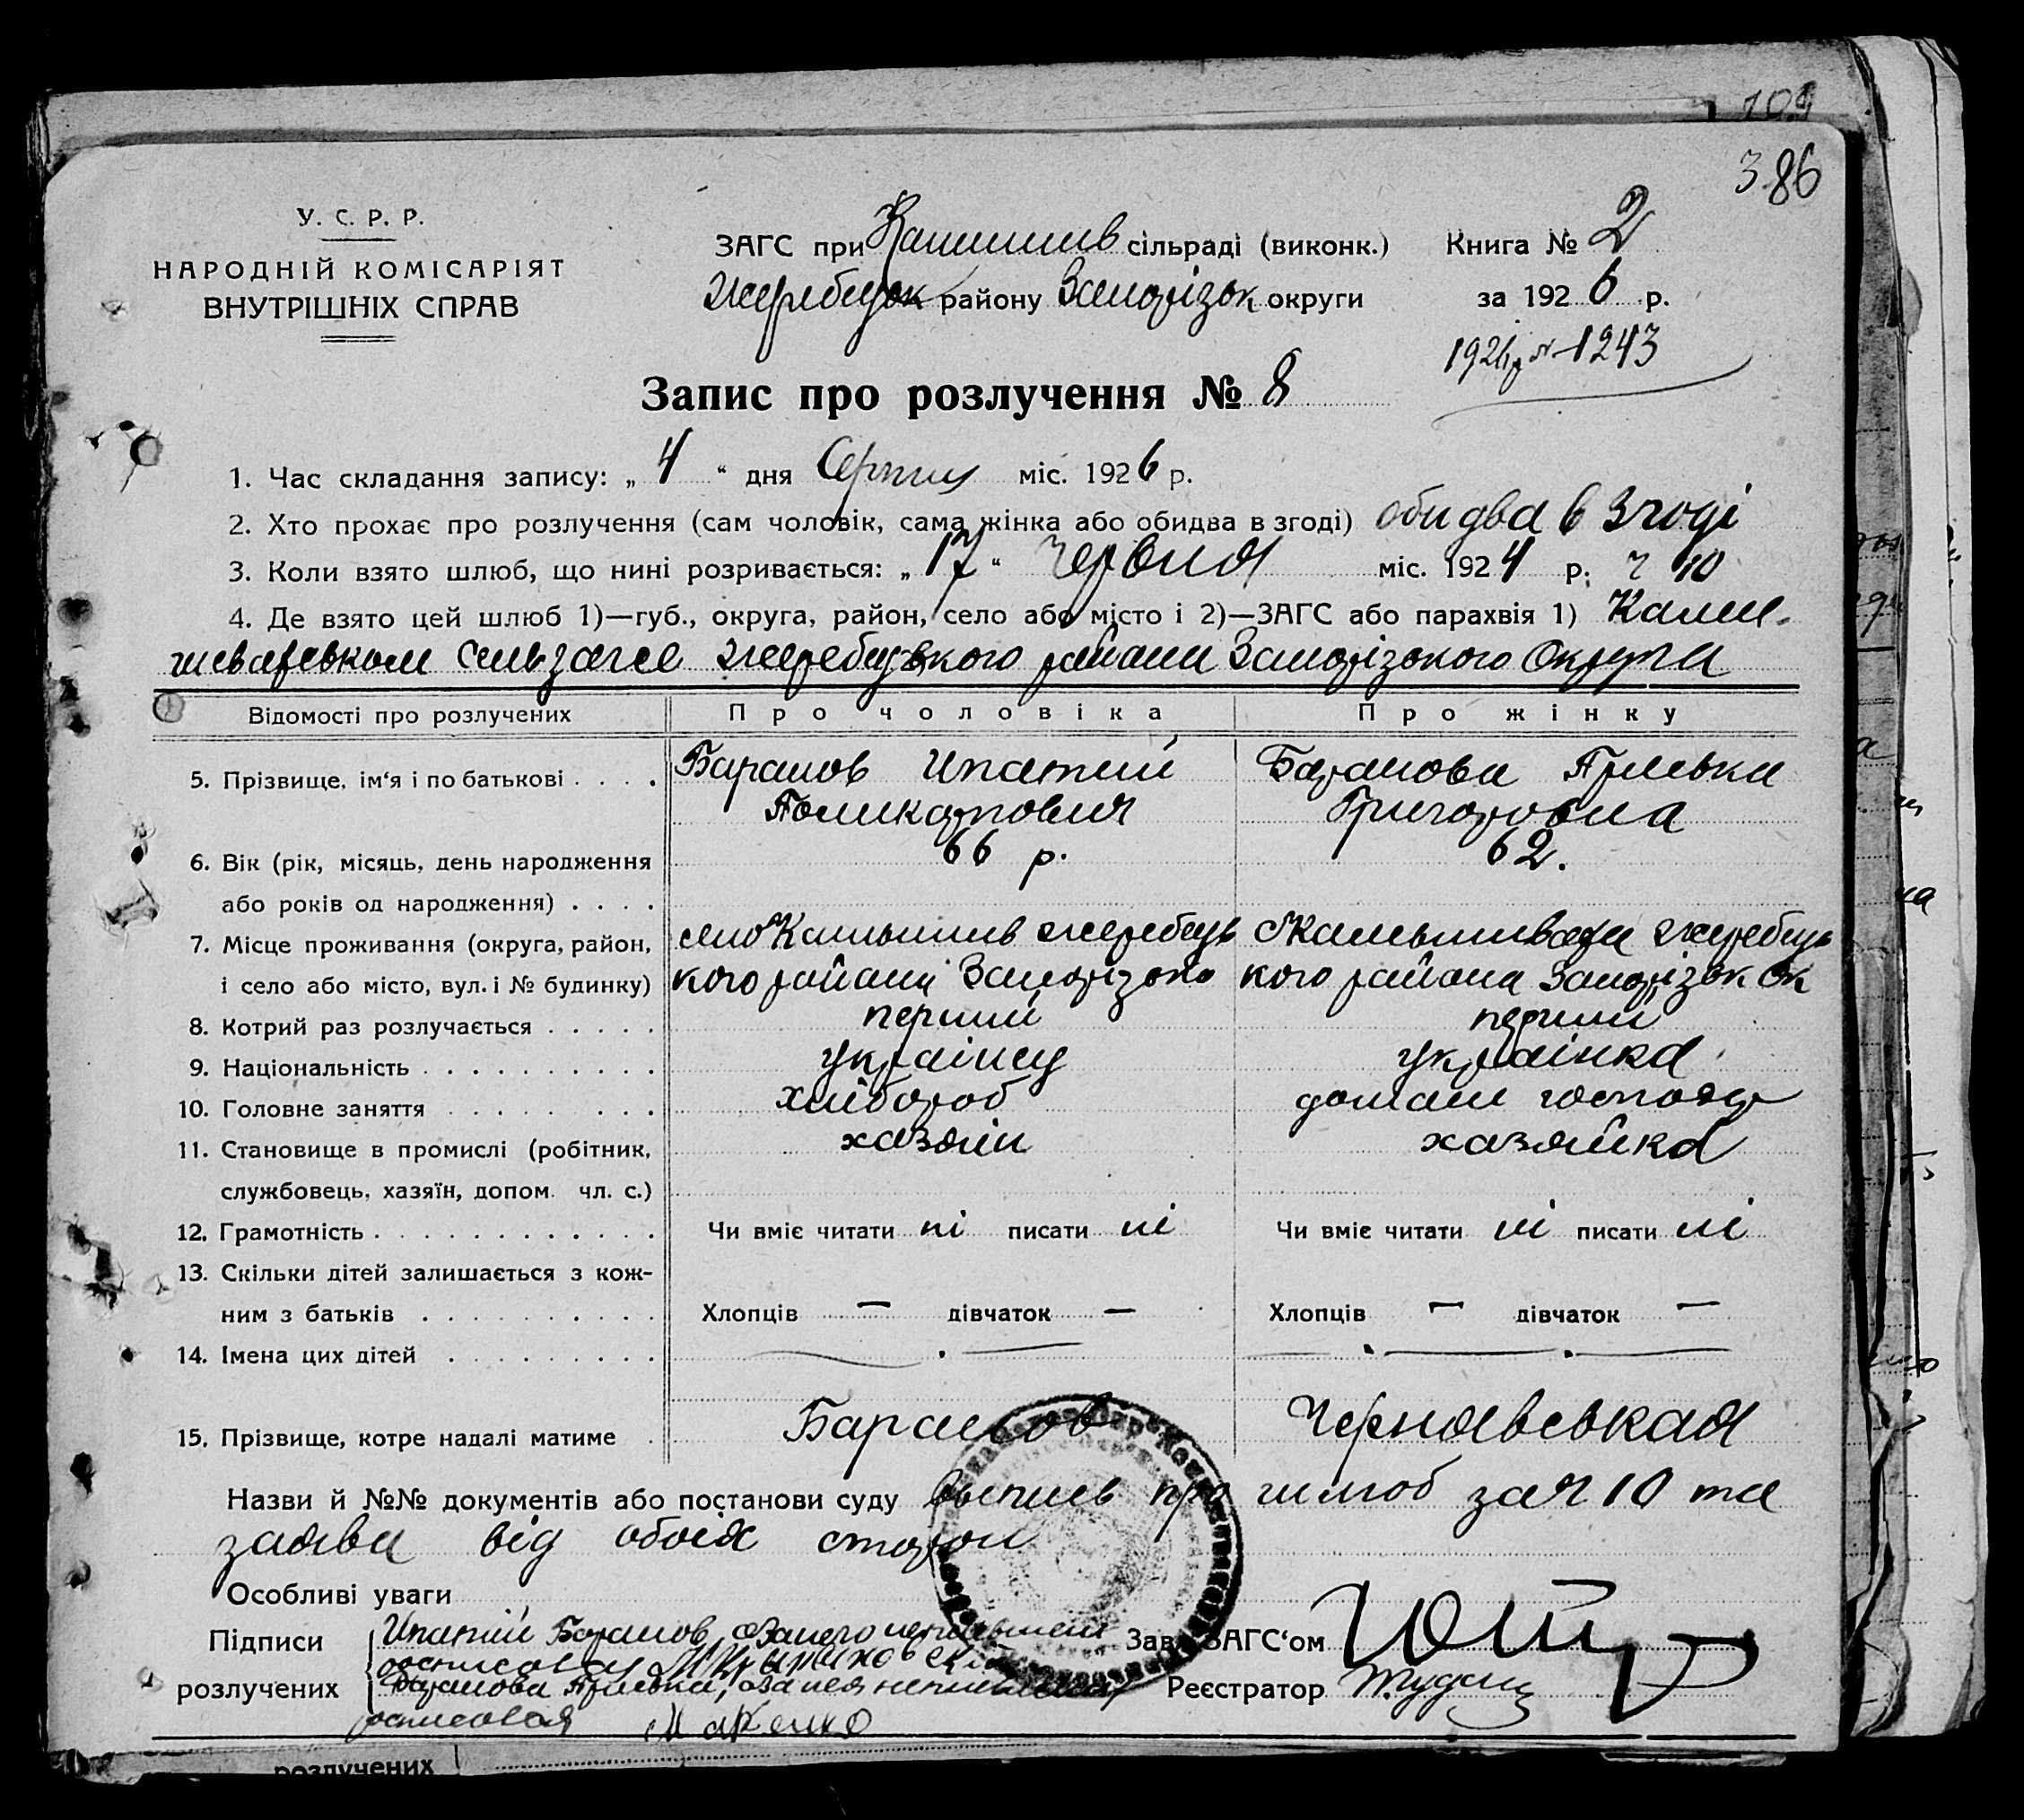 109
386
У. С. Р. Р.
НАРОДНІЙ КОМІСАРІЯТ
ВНУТРІШНІХ СПРАВ
ЗАГС при Камишив сільраді (виконк.) Книга № 2
Жеребцьк району Запорізьк округи за 1926 р.
1926 р № 1243
Запис про розлучення № 8
1. Час складання запису: „ 4 “ дня Серпня міс. 1926 р.
2. Хто прохає про розлучення (сам чоловік, сама жінка або обидва в згоді) обидва в згоді
3. Коли взято шлюб, що нині розривається: „ 17 “ червня міс. 1924 р. ч 10
4. Де взято цей шлюб 1)—губ., округа, район, село або місто і 2)—ЗАГС або парахвія 1) Камы-
шеваревком сельзагсе Жеребцького района Запорізького Округа
Відомості про розлучених Про чоловіка Про жінку
5. Прізвище, ім‘я і по батькові . . . . Баранов Ипатий Баранова
Поликарпович Григоровна
6. Вік (рік, місяць, день народження 66 р. 62.
або років од народження) . . . .
7. Місце проживання (округа, район, село Камышив Жеребець
і село або місто, вул. і № будинку) кого району Запорізько кого района Запорізьк Ок
8. Котрий раз розлучається . . . . . перший перший
9. Національність . . . . . . . . . . українец українка
10. Головне заняття . . . . . . . . хлібороб домашн господ
11. Становище в промислі (робітник, хазяїн хазяйка
службовець, хазяїн, допом. чл. с.)
12. Грамотність . . . . . . . . . . . . . Чи вміє читати ні писати ні Чи вміє читати ні писати ні
13. Скільки дітей залишається з кож-
ним з батьків . . . . . . . . . . Хлопців — дівчаток — Хлопців — дівчаток —
14. Імена цих дітей . . . . . . . . .
15. Прізвище, котре надалі матиме . Баранов Чернявськая
Назви й №№ документів або постанови суду выпись про шлюб за ч 10 та
заява від обоїх сторон
Особливі уваги
Підписи Ипатий Баранов, а за него неписьмен Зав. ЗАГС‘ом
росписовся
розлучених Баранова а за нея неписьмен Реєстратор
росписовся Макенко
розлучених